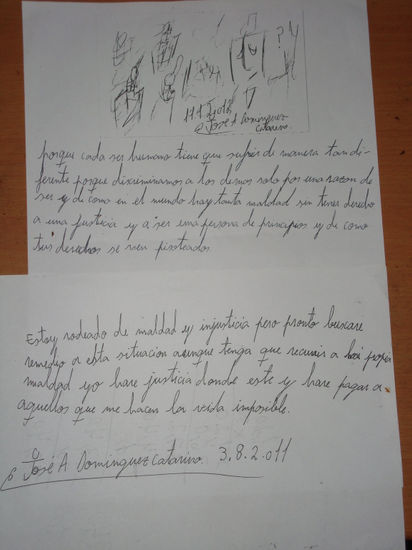 José A Dominguez
Catarino.
porque cada ser humano tiene que sufrir de manera tan di-
ferente porque discriminamos a los demas solo por una razon de
ser y de como en el mundo hay tanta maldad sin tener derecho
a una justicia y a ser una persona de principios y de como
tus derechos se ven pisoteados
Estoy rodeado de maldad y injusticia pero pronto buscare
remedio a esta situacion aunque tenga que recurrir a propia
maldad yo hare justicia donde este y hare pagar a
aquellos que me hacen la vida imposible.
José A. Dominguez Catarino. 3.8.2.011